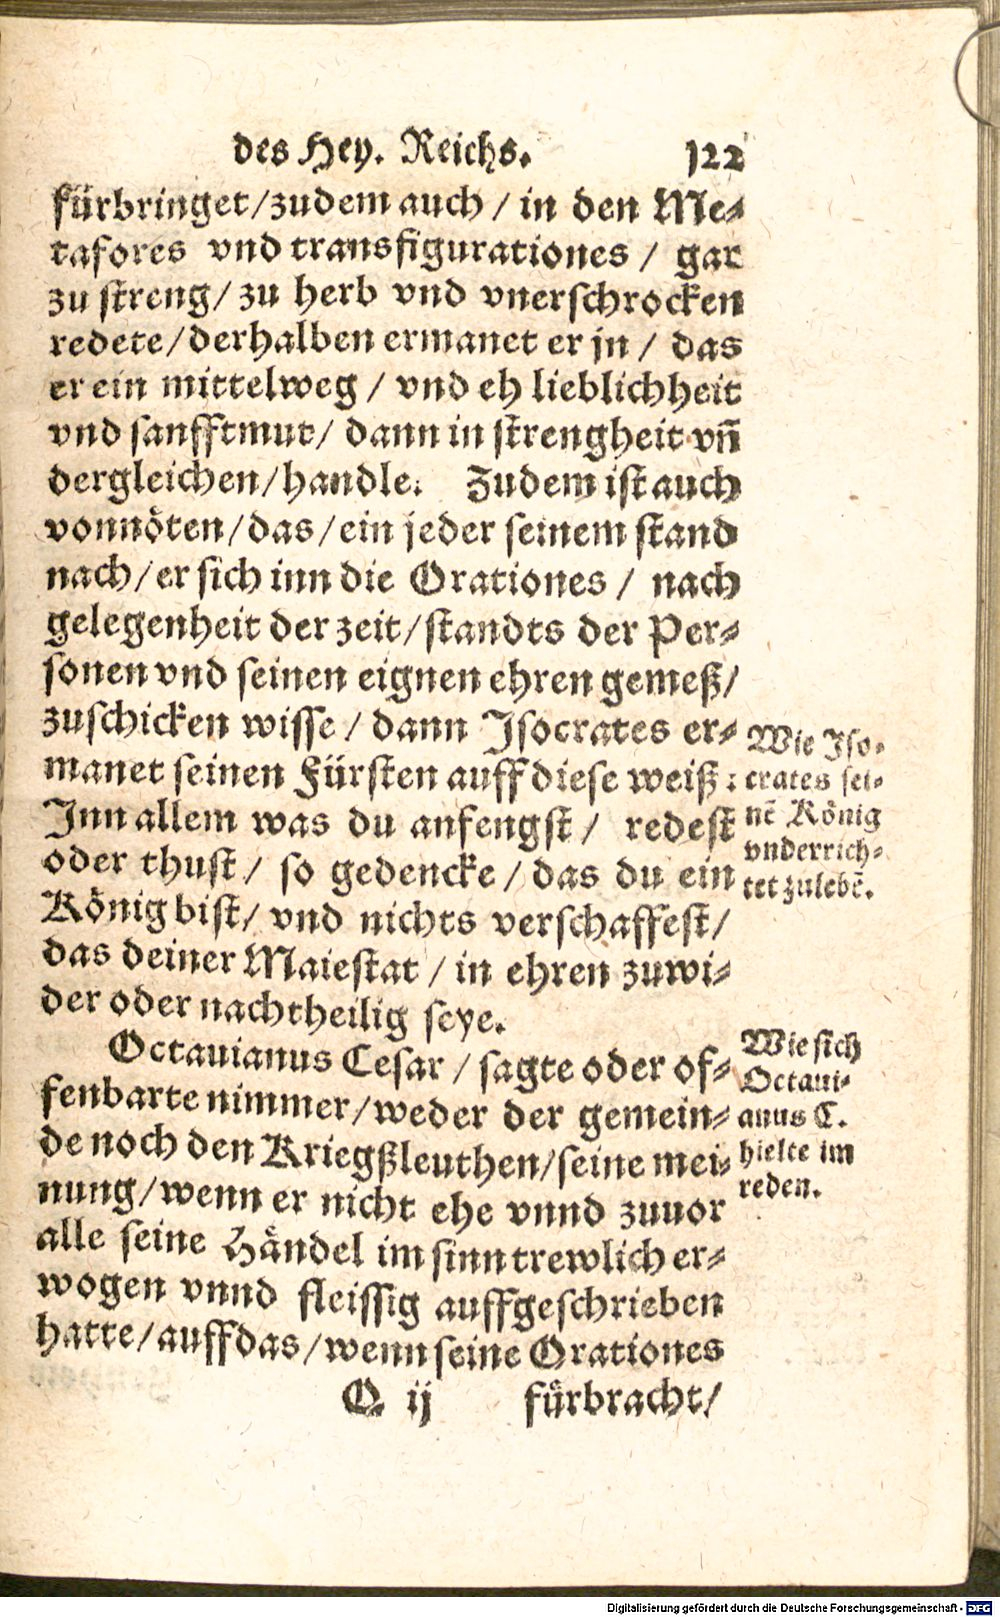 des Hey. Reichs. 122
fürbringet/zudem auch / in den Me-
tafores vnd transfigurationes / gar
zu streng/ zu herb vnd vnerschrocken
redete/derhalben ermanet er jn / das
er ein mittelweg / vnd eh lieblichheit
vnd sanfftmut/ dann in strengheit vñ
dergleichen/handle. Zudem ist auch
vonnöten/das/ein jeder seinem stand
nach/er sich inn die Orationes / nach
gelegenheit der zeit/standts der Per-
sonen vnd seinen eignen ehren gemeß/
zuschicken wisse / dann Isocrates er-
manet seinen Fürsten auff diese weiß :
Inn allem was du anfengst / redest
oder thust/ so gedencke / das du ein
König bist/ vnd nichts verschaffest/
das deiner Maiestat / in ehren zuwi-
der oder nachtheilig seye.
Wie Iso-
crates sei-
nē König
vnderrich-
tet zulebē.
Octauianus Cesar / sagte oder of-
fenbarte nimmer/weder der gemein-
de noch den Kriegßleuthen/seine mei-
nung/wenn er nicht ehe vnnd zuuor
alle seine Händel im sinn trewlich er-
wogen vnnd fleissig auffgeschrieben
hatte/auffdas/wenn seine Orationes
Wie sich
Octaui-
anus C.
hielte im
reden.
Q ij fürbracht/
Digitalisierung gefördert durch die Deutsche Forschungsgemeinschaft - DFG